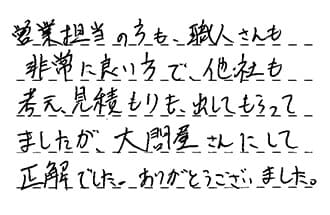 営業担当の方も、職人さんも
非常に良い方で、他社も
考え、見積もりも、出してもらって
ましたが、大問屋さんにして
正解でした。ありがとうございました。